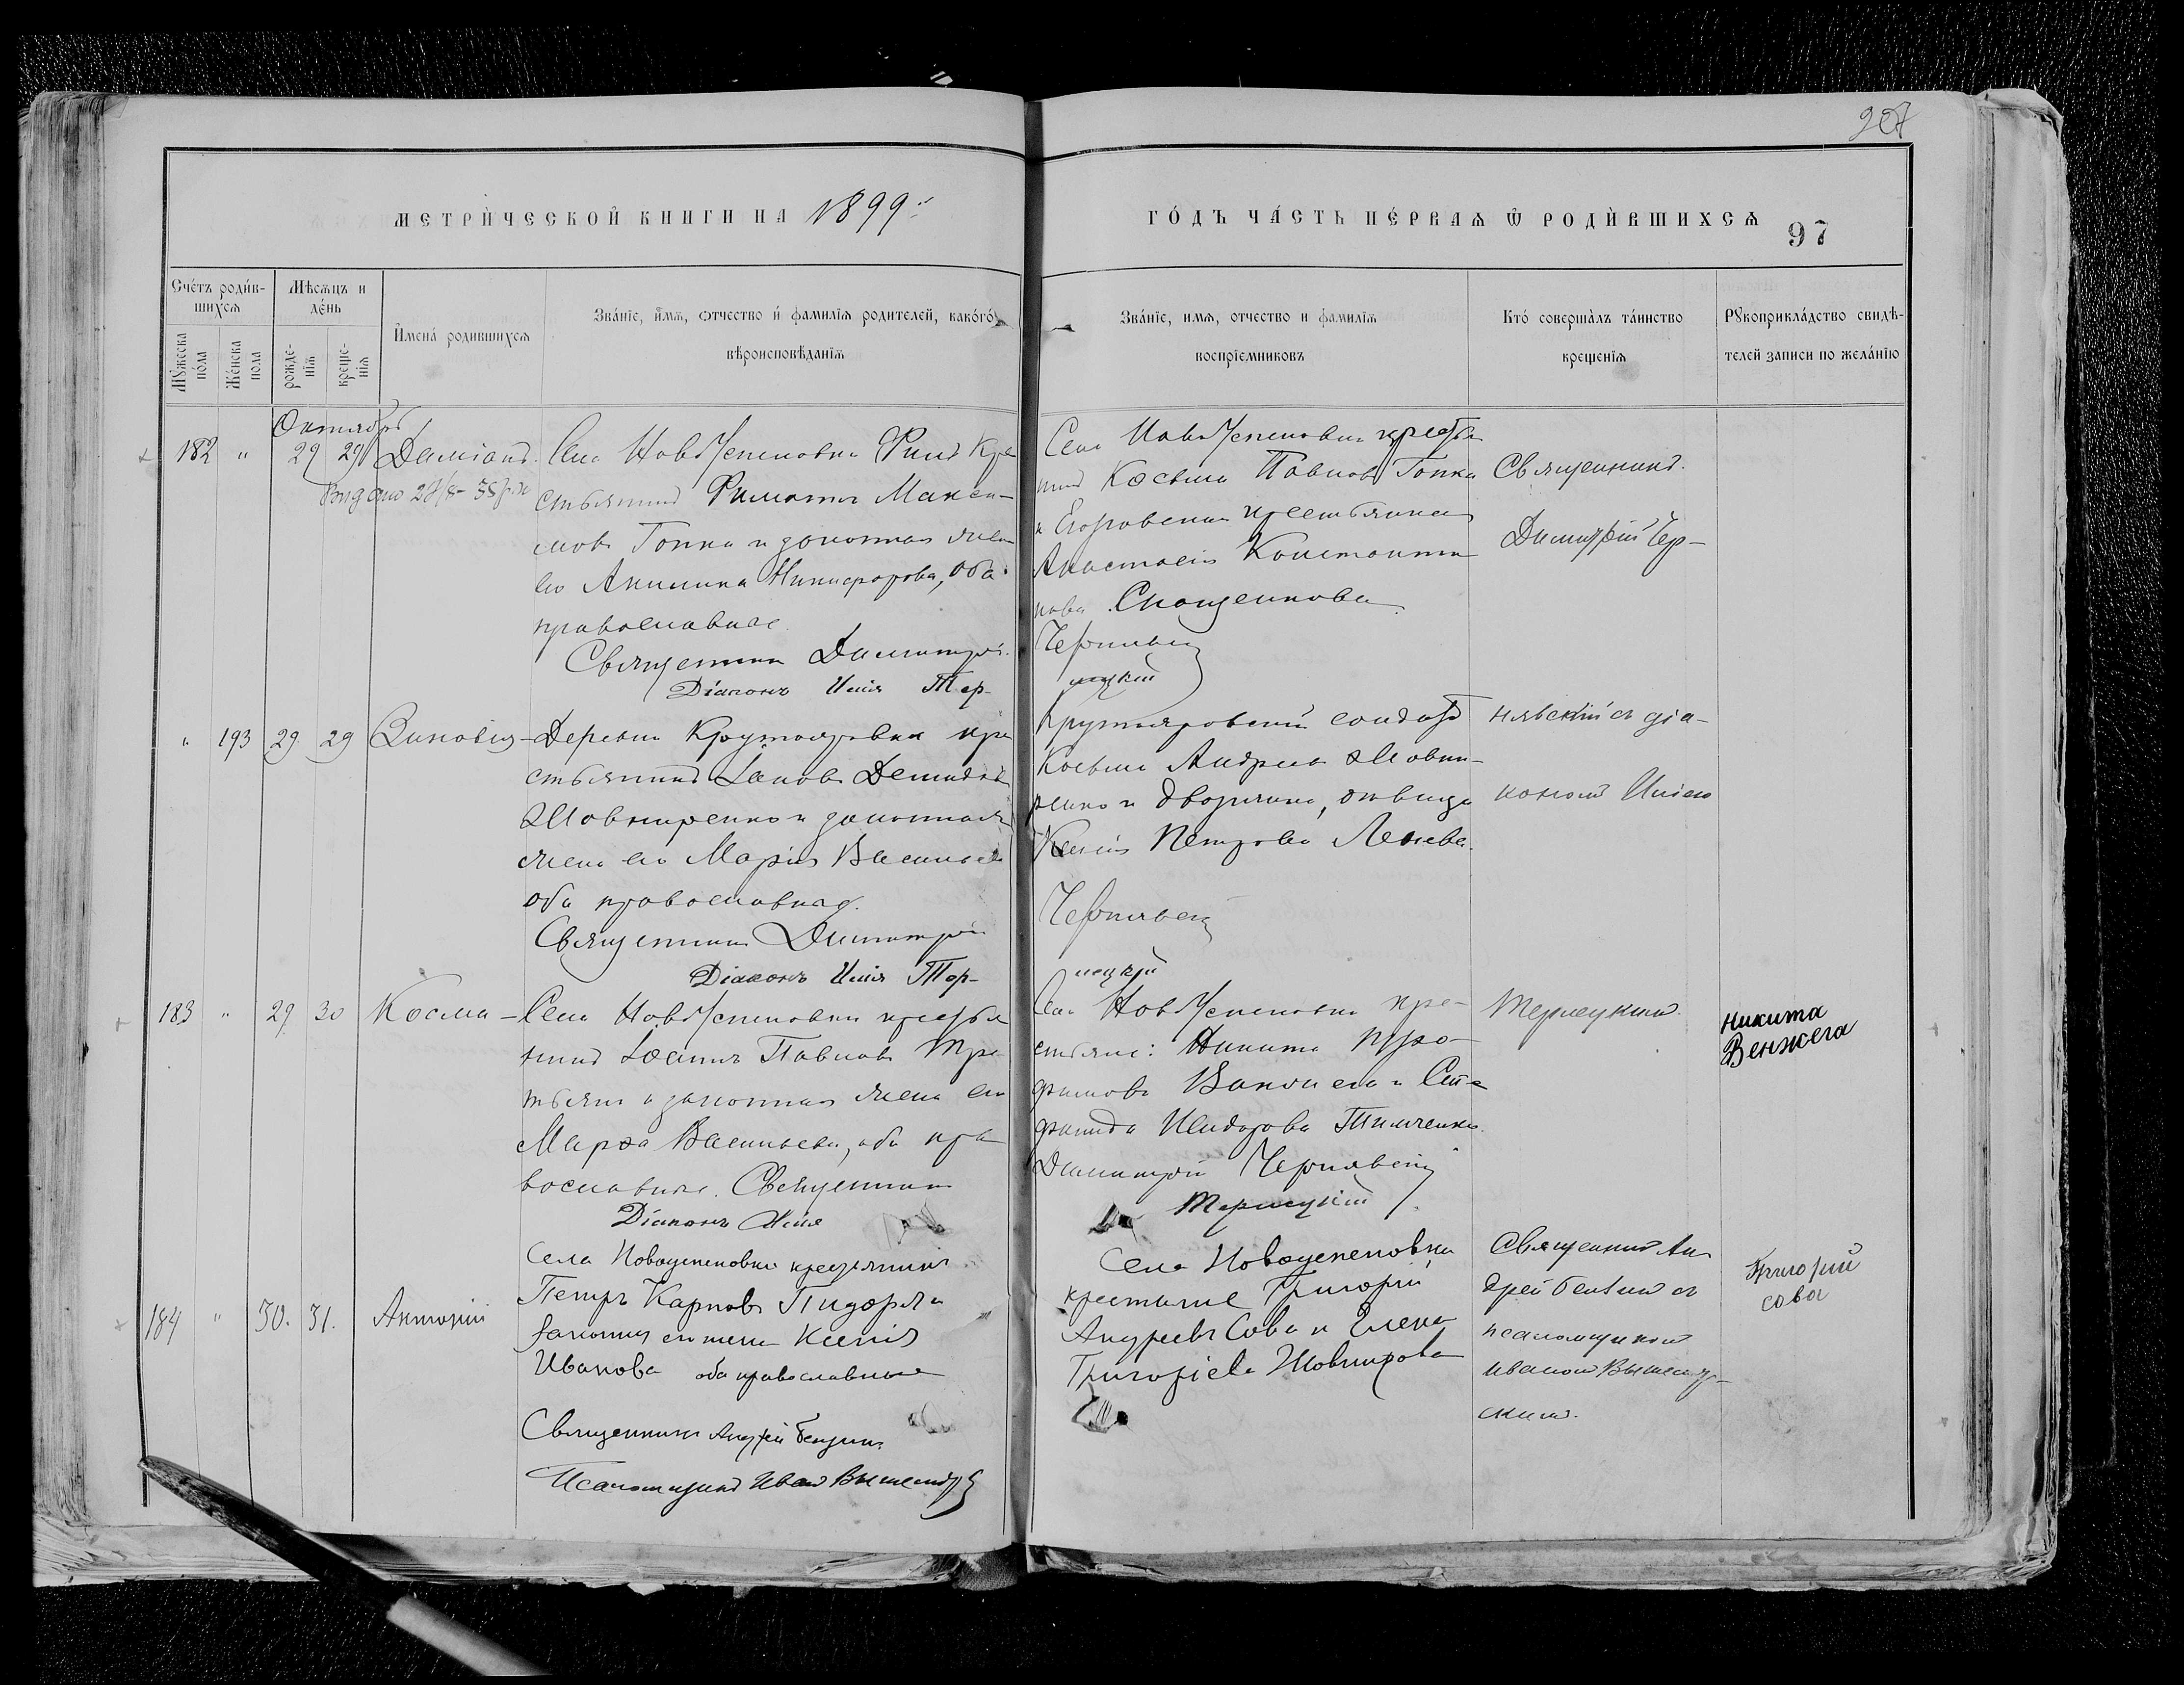 207
МЕТРИ́ЧЕСКОЙ КНИГИ НА 1899
ГО́ДЪ ЧА́СТЬ ПЕ́РВАѦ Ѿ РОДИ́ВШИХСѦ
97
Сче́тъ роди́в-
шихсѧ
Мѣсѧцъ и
де́нь
Мꙋжеска по́ла
Же́нска пола
рожде-
нїѧ
креще-
нїѧ
И҆мена́ родившихсѧ
Зва́нїе, и҆́мѧ, ѻтчество и҆ фамилїѧ родителей, како́гѡ
вѣроисповѣданїѧ
Зва́нїе, имѧ, отчество и фамилїѧ
воспрїемниковъ
Кто́ соверша́лъ та́инство
крещенїѧ
Рꙋкоприкла́дство свидѣ-
телей записи по жела́нїю
Октябрь
182 " 29 29 Даміанъ
Села НовоУспеновки кре
стьянинъ Макси-
мовъ Гопка и законная жена
его Акилина Никифорова, оба
православные
Священникъ Димитрій
Діаконъ Илія Тер-
Села НовоУспеновки крестья
нинъ Косьма Павловъ Гопка
и Егоровская крестьянка
Анастасія Константи
нова
Чернявскій
лецкій
Священникъ
Димитрій Чер-
" 193 29 29 Зиновія
Деревни Крутояровки кре
стьянинъ Іаковъ Демидовъ
Шовкиренко и законная
жена его Марія Васильева
оба православные
Священникъ Димитрій
Діаконъ Илія Тер-
Крутояровскій солдатъ
Косьма Андреевъ Шовки-
ренко и дворянка, дѣвица
Ксенія Петрова
Чернявскій
лецкій
нявскій съ діа-
кономъ Иліею
183 " 29 30 Косма
Села НовоУспеновки крестья
нинъ Іоаннъ Павловъ Тре
тьякъ и законная жена его
Марѳа Васильева, оба пра
вославные. Священникъ
Діаконъ Илія
Села НовоУспеновки кре-
стьяне: Никита Тро-
фимовъ и Сте
фанида Исидорова Тимченко.
Димитрій Чернявскій
Терлецкій
Терлецкимъ.
Никита
Венжега
184 " 30. 31. Антоній
Села Новоуспеновки крестьянинъ
Петръ Карповъ Пидоря и
законная его жена Ксенія
Иванова оба православные
Священникъ Андрей
Псаломщикъ Иванъ
Села Новоуспеновки
крестьяне Григорій
Андреевъ Сова и Елена
Григоріева
Священникъ Ан
дрей съ
псаломщикомъ
Иваномъ
скимъ.
Григорий
сова